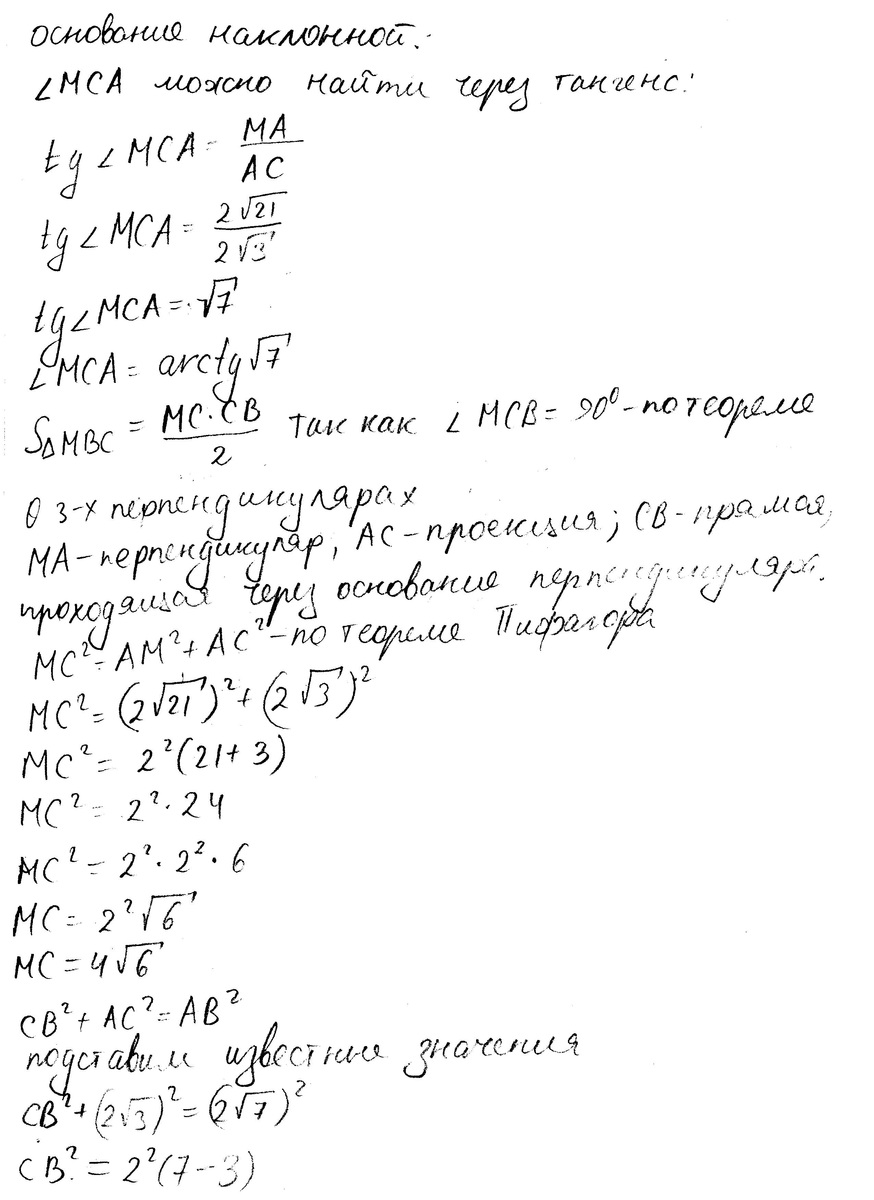 основание наклонной.
∠MCA можно найти через тангенс:
tg∠MCA = MA/AC
tg∠MCA = 2√21/2√3
tg∠MCA = √7
∠MCA = arctg√7
S△MBC = MC·CB/2 так как ∠MCB = 90° - по теореме
О 3-х перпендикулярах
MA - перпендикуляр, AC - проекция; CB - прямая,
проходящая через основание перпендикуляра.
MC² = AM² + AC² - по теореме Пифагора
MC² = (2√21)² + (2√3)²
MC² = 2²(21+3)
MC² = 2²·24
MC² = 2²·2²·6
MC = 2²√6
MC = 4√6
CB² + AC² = AB²
подставим известные значения
CB² + (2√3)² = (2√7)²
CB² = 2²(7-3)